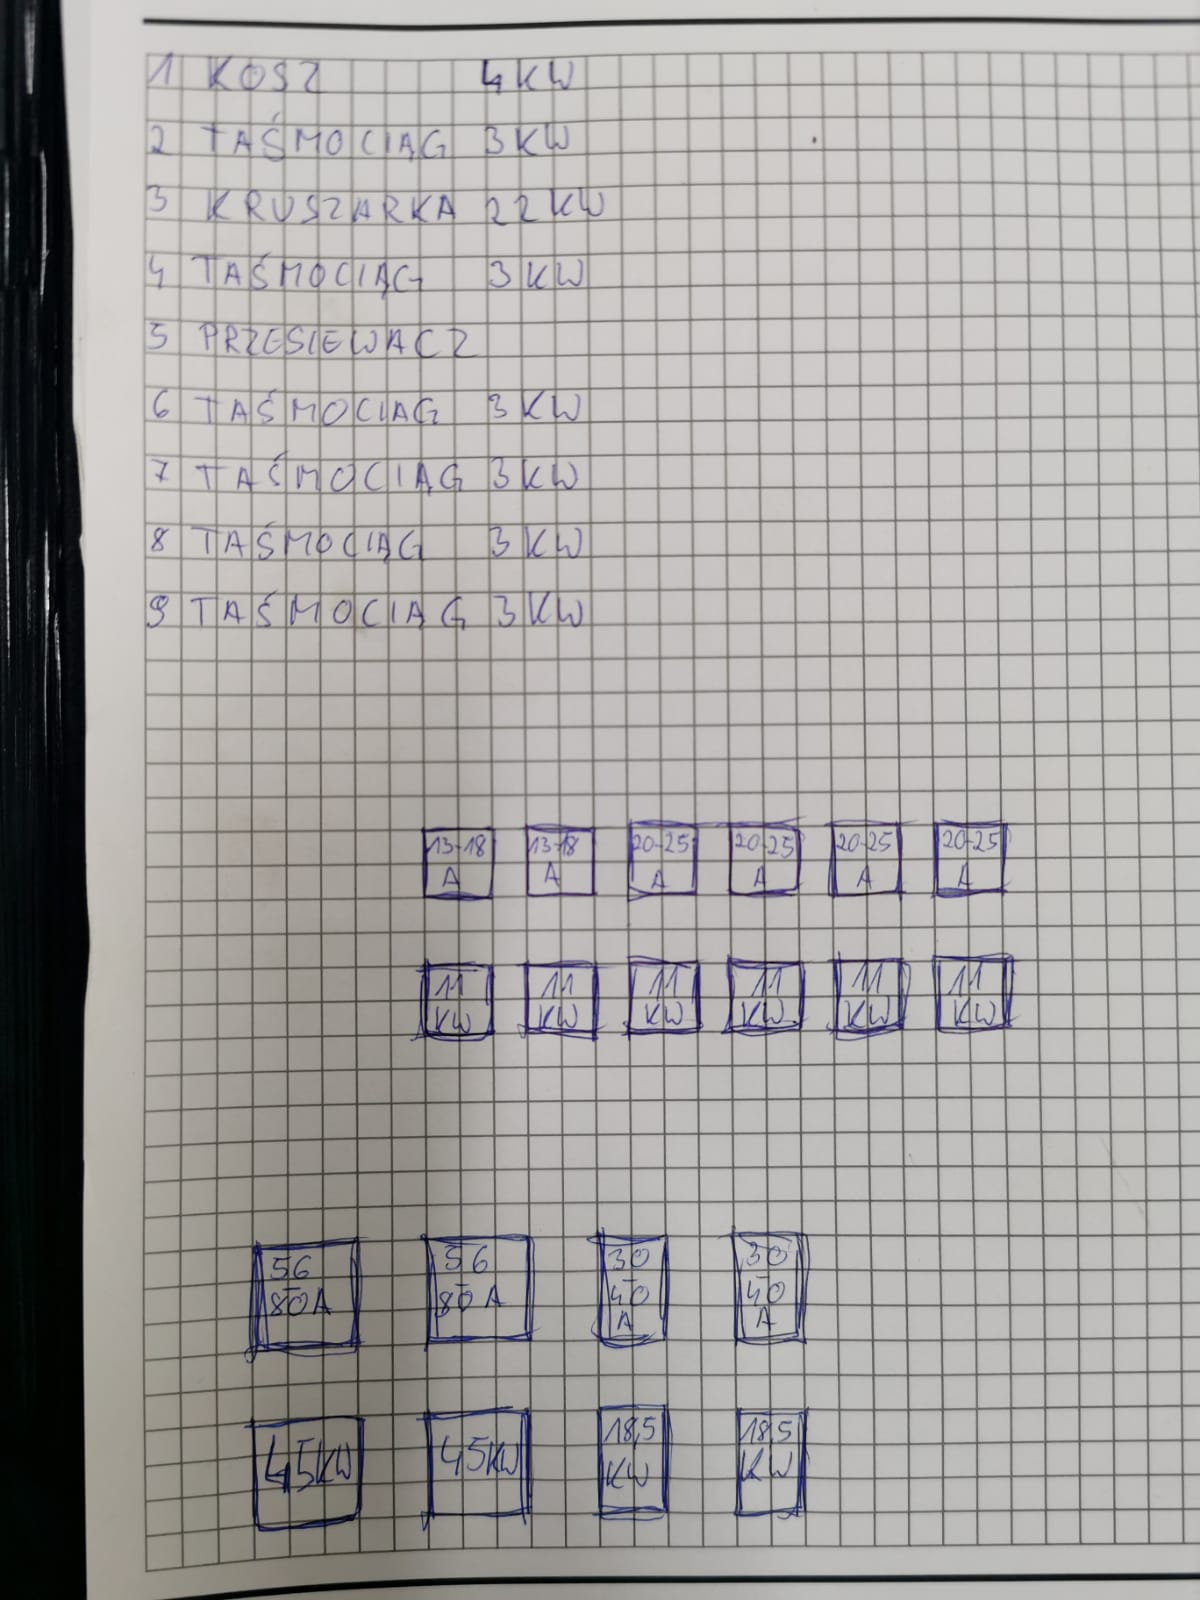 1 KOSZ 4KW
2 TAŚMOCIĄG 3KW
3 KRUSZARKA 22KW
4 TAŚMOCIĄG 3KW
5 PRZESIEWACZ
6 TAŚMOCIAG 3KW
7 TAŚMOCIĄG 3KW
8 TAŚMOCIĄG 3KW
9 TAŚMOCIĄG 3KW
13-18 13-18 20-25 20-25 20-25 20-25
A A A A A A
11 11 11 11 11 11
KW KW KW KW KW KW
56 - 80A 56 - 80A 30 - 40 A 30 - 40 A
45KW 45KW 18,5 KW 18,5 KW